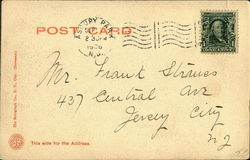 POST CARD.
ASBURY PARK
1906
N.J.
Mr. Frank Strauss
437 Central Av
Jersey City
NJ
This side for the Address.